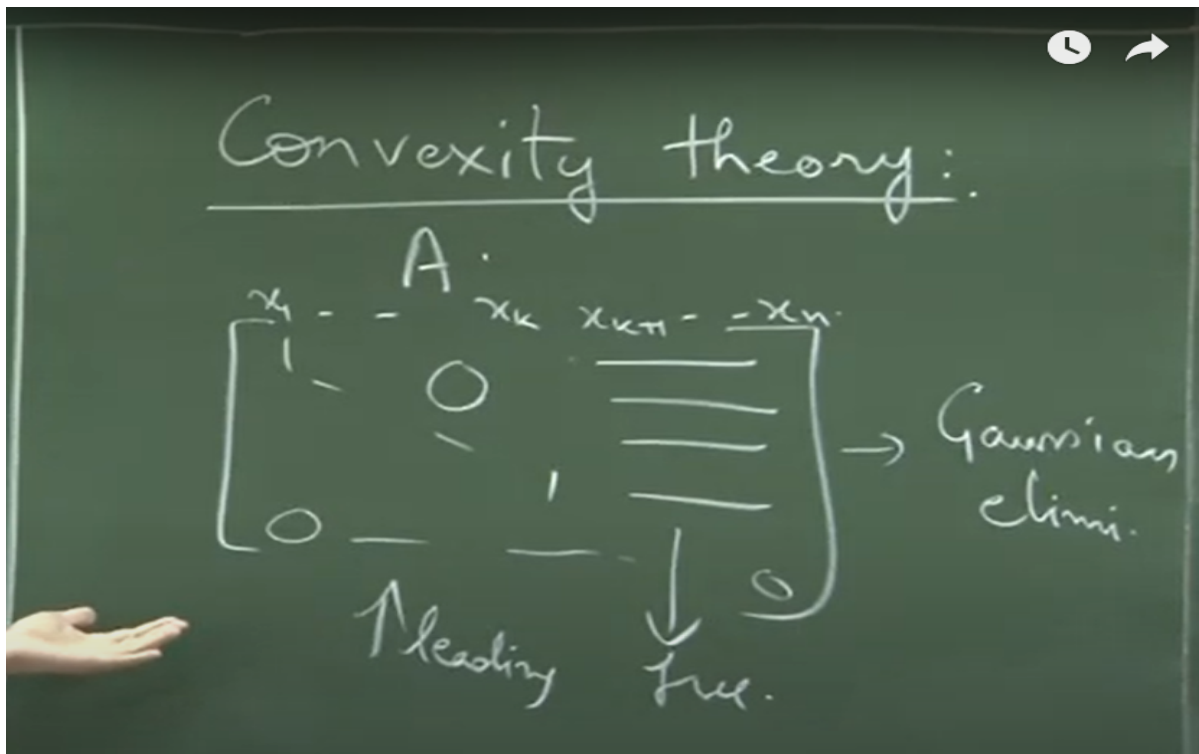 Convexity theory:
A
x₁ - - xₖ xₖ₊₁ - - xₙ
1 O
1
O O
→ Gaussian
elimi.
↑ leading ↓ free.